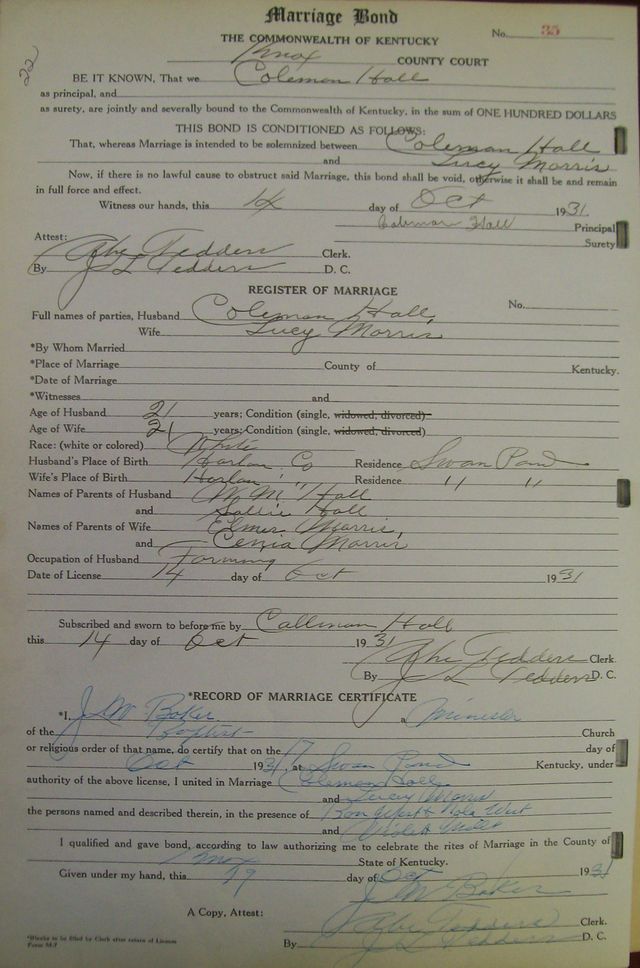 Marriage Bond
No. 35
THE COMMONWEALTH OF KENTUCKY
22
Knox COUNTY COURT
BE IT KNOWN, That we Coleman Hall
as principal, and
as surety, are jointly and severally bound to the Commonwealth of Kentucky, in the sum of ONE HUNDRED DOLLARS
THIS BOND IS CONDITIONED AS FOLLOWS:
That, whereas Marriage is intended to be solemnized between Coleman Hall
and Lucy Morris
Now, if there is no lawful cause to obstruct said Marriage, this bond shall be void, otherwise it shall be and remain
in full force and effect.
Witness our hands, this 14 day of Oct 1931.
Coleman Hall Principal
Surety
Attest:
Abe Tedders Clerk.
By J L Tedders D. C.
REGISTER OF MARRIAGE
No.
Full names of parties, Husband Coleman Hall,
Wife Lucy Morris
*By Whom Married
*Place of Marriage County of Kentucky.
*Date of Marriage
*Witnesses and
Age of Husband 21 years; Condition (single, widowed, divorced)
Age of Wife 21 years; Condition (single, widowed, divorced)
Race: (white or colored) White
Husband's Place of Birth Harlan Co Residence Swan Pond
Wife's Place of Birth Harlan " Residence " "
Names of Parents of Husband W. M. Hall
and Sallie Hall
Names of Parents of Wife Elmer Morris,
and Morris
Occupation of Husband Farming
Date of License 14 day of Oct 1931
Subscribed and sworn to before me by Calleman Hall
this 14 day of Oct 1931
Abe Tedders Clerk
By J L Tedders D. C.
*RECORD OF MARRIAGE CERTIFICATE
*I, J M Baker a Minister
of the Baptist Church
or religious order of that name, do certify that on the 17 day of
Oct 1931, at Swan Pond Kentucky, under
authority of the above license, I united in Marriage Coleman Hall
and Lucy Morris
the persons named and described therein, in the presence of West & Nola West
and
I qualified and gave bond, according to law authorizing me to celebrate the rites of Marriage in the County of
Knox State of Kentucky.
Given under my hand, this day of Oct 1931
J M Baker
A Copy, Attest: Abe Tedders Clerk.
By J L Tedders D. C.
*Blanks to be filled by Clerk after return of License
Form M-7